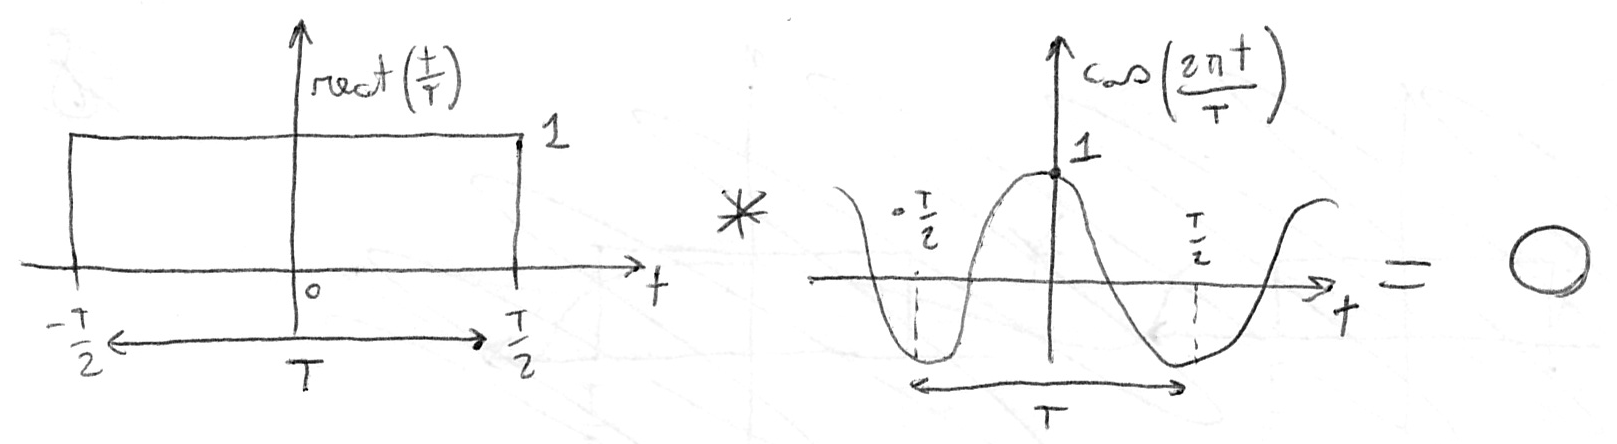 rect(t/T)
1
0
t
-T/2
T/2
T
*
cos(2πt/T)
1
-T/2
T/2
t
T
= 0